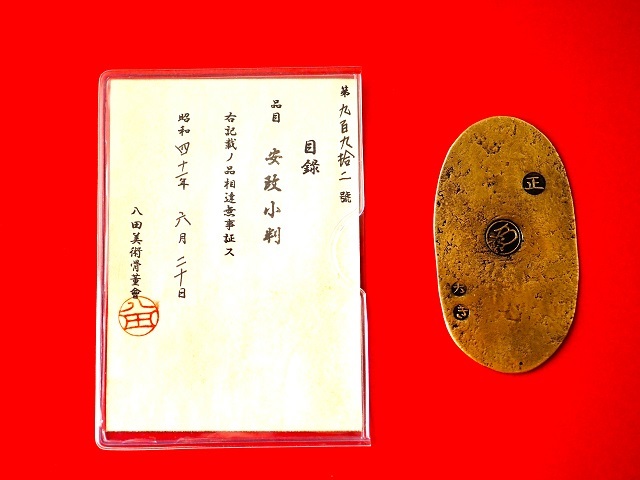 第九百九拾二號
目録
品目 安政小判
右記載ノ品相違無事証ス
昭和四十一年 六月二十日
八田美術骨董會
八田
正